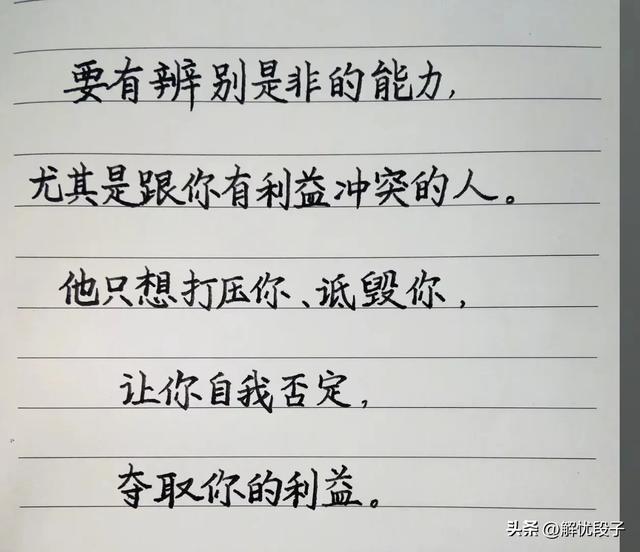 要有辨别是非的能力,
尤其是跟你有利益冲突的人。
他只想打压你、诋毁你,
让你自我否定,
夺取你的利益。
头条 @解忧段子